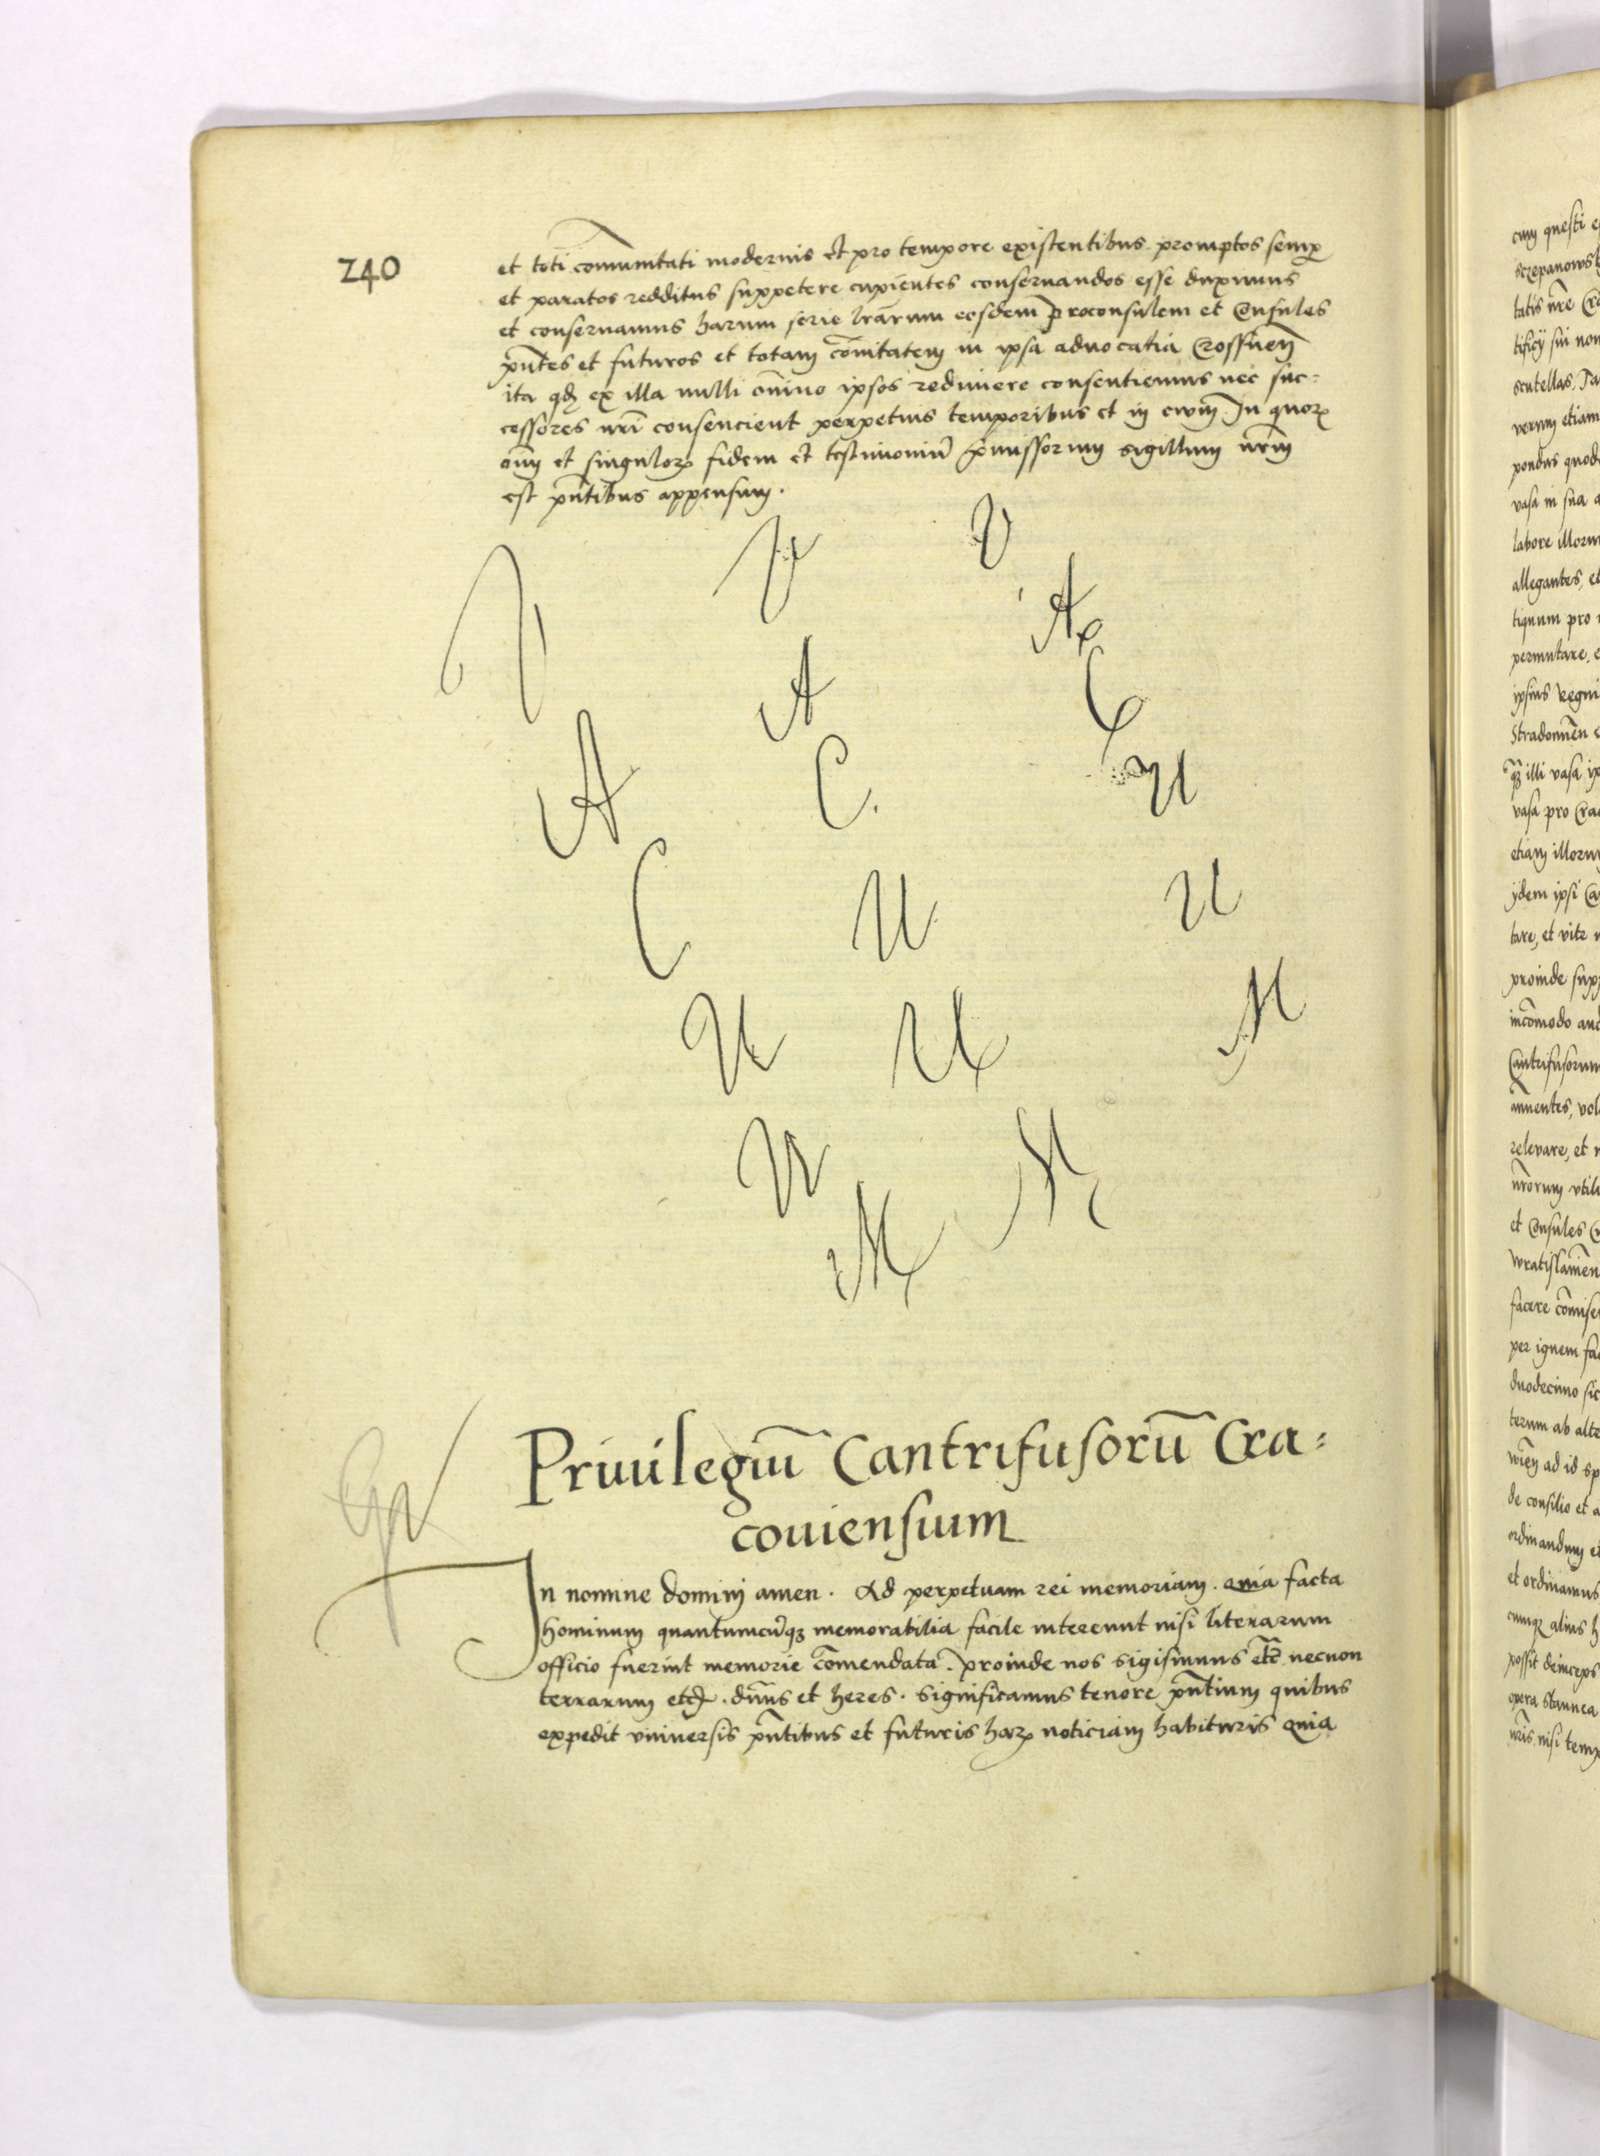 240
et toti com̄unitati modernis et pro tempore existentibus promptos semp̱
et paratos redditus suppetere cupientes conseruandos esse duximus
et conseruamus harum serie lr̄arum eosdem proconsulem et Consules
pn̄tes et futuros et totam com̄itatem in ipsa aduocatia Crossnen̄
ita qđ ex illa nulli om̄ino ipsos redimere consentiemus nec suc=
cessores nr̄i consencient perpetuis temporibus et in ewm̄. In quorꝝ
om̄ et singulorꝝ fidem et testimoniū p̄missorum sigillum nr̄m
est pn̄tibus appensum.
V V V
A A A
C C. C
U U U
U U
M M M
Priuilegiū Cantrifusorū Cra=
couiensium
In nomine domini amen. Ad perpetuam rei memoriam. Quia facta
hominum quantumcūqꝫ memorabilia facile intereunt nisi literarum
officio fuerint memorie com̄endata. proinde nos Sigismuns etc̄ necnon
terrarum etc̄. dn̄us et heres. Significamus tenore pn̄tium quibus
expedit vniuersis pn̄tibus et futuris harꝝ noticiam habituris Quia
cum questi
tatis nr̄e
tificij sui non
scutellas.
verum etiam
pondus
vasa in sua
labore illorum
allegantes, et
tiquum pro
permutare,
ipsius Regni
qꝫ illi vasa
vasa pro
etiam illorum
ijdem ipsi
tare, et vite
proinde
incōmodo
Cantrifusorum
relevare, et
nr̄orum
et Consules
facere
per ignem
duodecimo
terum ab
ad id
de consilio et
ordinandum et
et ordinamus
alius
possit deinceps
opera stannea
nisi